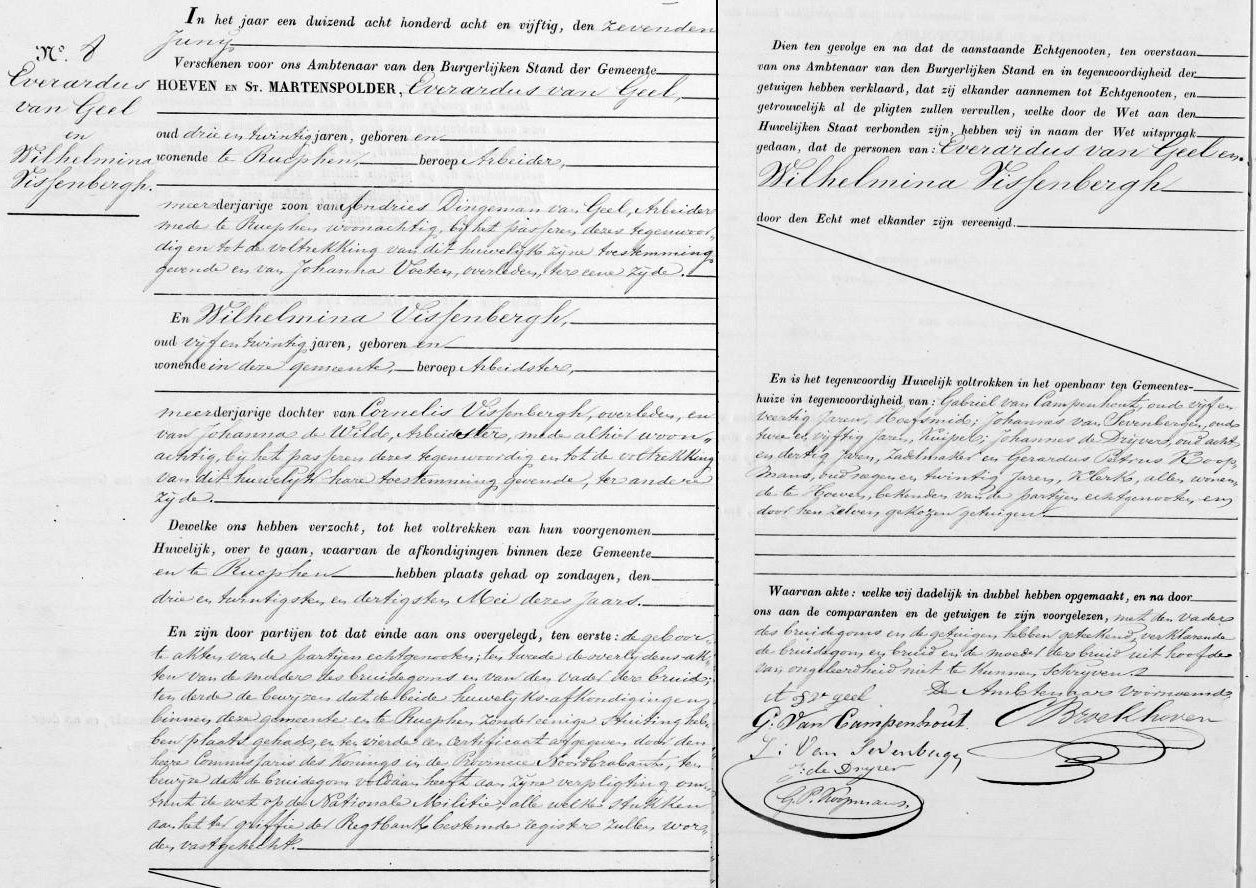 No. 8
Everardus
van Geel
en
Wilhelmina
Vissenbergh.
In het jaar een duizend acht honderd acht en vijftig, den zevenden
Juny
Verschenen voor ons Ambtenaar van den Burgerlijken Stand der Gemeente
HOEVEN EN ST. MARTENSPOLDER, Everardus van Geel,
oud drie en twintig jaren, geboren en
wonende te Rucphen beroep Arbeider,
meerderjarige zoon van Andries Dingeman van Geel, Arbeider
mede te Rucphen woonachtig, bij het passeren dezes tegenwoor-
dig en tot de voltrekking van dit huwelijk zijne toestemming
gevende en van Johanna Voeten, overleden, ter eene zijde.
En Wilhelmina Vissenbergh,
oud vijf en twintig jaren, geboren en
wonende in deze gemeente, beroep Arbeidster,
meerderjarige dochter van Cornelis Vissenbergh, overleden, en
van Johanna de Wild, Arbeidster, mede alhier woon-
achtig, bij het passeren dezes tegenwoordig en tot de voltrekking
van dit huwelijk hare toestemming gevende, ter andere
zijde.
Dewelke ons hebben verzocht, tot het voltrekken van hun voorgenomen
Huwelijk, over te gaan, waarvan de afkondigingen binnen deze Gemeente
en te Rucphen hebben plaats gehad op zondagen, den
drie en twintigsten en dertigsten Mei dezes jaars.
En zijn door partijen tot dat einde aan ons overgelegd, ten eerste: de geboor-
te akten van de partijen echtgenooten; ten tweede de overlydens ak-
ten van de moeder des bruidegoms en van den vader der bruid;
ten derde de bewijzen dat de beide huwelijks-afkondigingen
binnen deze gemeente en te Rucphen zonder eenige stuiting heb-
ben plaats gehad, en ten vierde een certificaat afgegeven door den
heere Commissaris des Konings in de Provincie Noordbrabant, ten
bewijze dat de bruidegom voldaan heeft aan zijne verpligting om-
trent de wet op de Nationale Militie, alle welke stukken
aan het ter griffie der Regtbank bestemde register zullen wor-
den vastgehecht.
Dien ten gevolge en na dat de aanstaande Echtgenooten, ten overstaan
van ons Ambtenaar van den Burgerlijken Stand en in tegenwoordigheid der
getuigen hebben verklaard, dat zij elkander aannemen tot Echtgenooten, en
getrouwelijk al de pligten zullen vervullen, welke door de Wet aan den
Huwelijken Staat verbonden zijn, hebben wij in naam der Wet uitspraak
gedaan, dat de personen van: Everardus van Geel en
Wilhelmina Vissenbergh
door den Echt met elkander zijn vereenigd.
En is het tegenwoordig Huwelijk voltrokken in het openbaar ten Gemeentes-
huize in tegenwoordigheid van: Gabriel van Campenhout, oud vijf en
veertig jaren, Hoefsmid; Johannes van Sevenbergen, oud
twee en vijftig jaren, kuiper; Johannes de Drijver, oud acht
en dertig jaren, zadelmaker en Gerardus Petrus Koop-
mans, oud negen en twintig jaren, Klerk, allen wonen-
de te Hoeven, bekenden van de partijen echtgenooten, en
door hen zelven gekozen getuigen.
Waarvan akte: welke wij dadelijk in dubbel hebben opgemaakt, en na door
ons aan de comparanten en de getuigen te zijn voorgelezen, met den vader
des bruidegoms en de getuigen hebben geteekend, verklarende
de bruidegom en bruid en de moeder der bruid uit hoofde
van ongeleerdheid niet te kunnen schrijven.
geel De Ambtenaar voornoemd
G. Van Campenhout CBroekhoven
J: Van Sevenberge
J: de Dryver
G. P. Koopmans